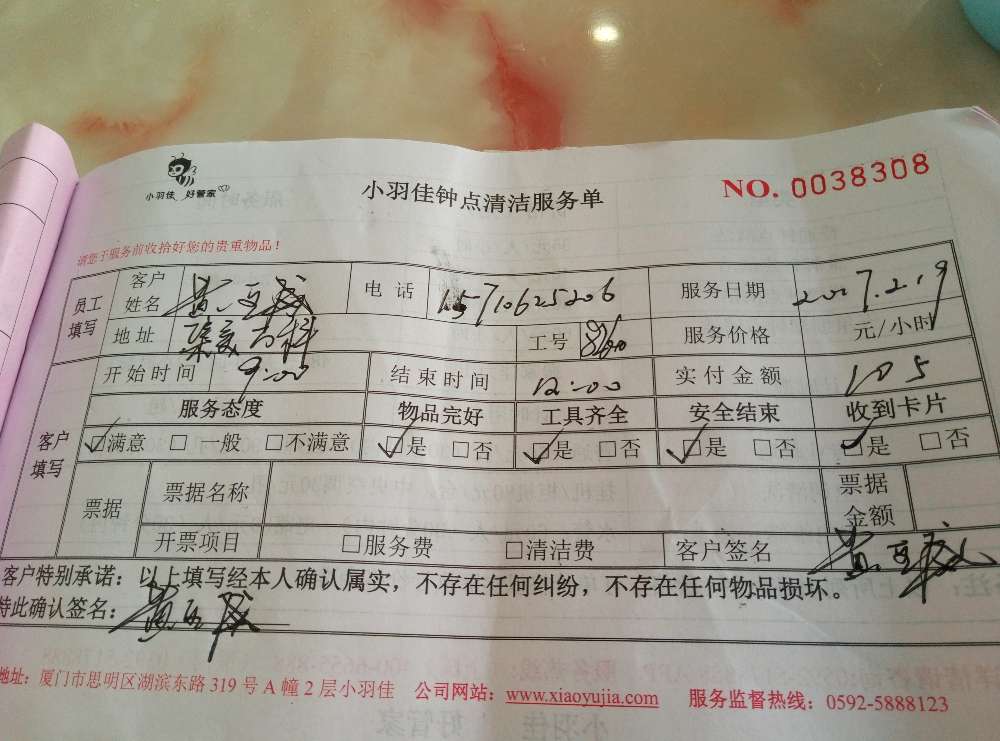 小羽佳 好管家
小羽佳钟点清洁服务单
NO. 0038308
请您于服务前收拾好您的贵重物品！
员工填写 客户姓名 黄 电话 15710625206 服务日期 2017.2.19
地址 工号 服务价格 元/小时
开始时间 9:00 结束时间 12:00 实付金额 105
客户填写 服务态度 物品完好 工具齐全 安全结束 收到卡片
☑满意 □一般 □不满意 ☑是 □否 ☑是 □否 ☑是 □否 ☑是 □否
票据 票据名称 票据金额
开票项目 □服务费 □清洁费 客户签名 黄
客户特别承诺：以上填写经本人确认属实，不存在任何纠纷，不存在任何物品损坏。
特此确认签名：黄
地址：厦门市思明区湖滨东路 319 号 A 幢 2 层小羽佳 公司网站：www.xiaoyujia.com 服务监督热线：0592-5888123